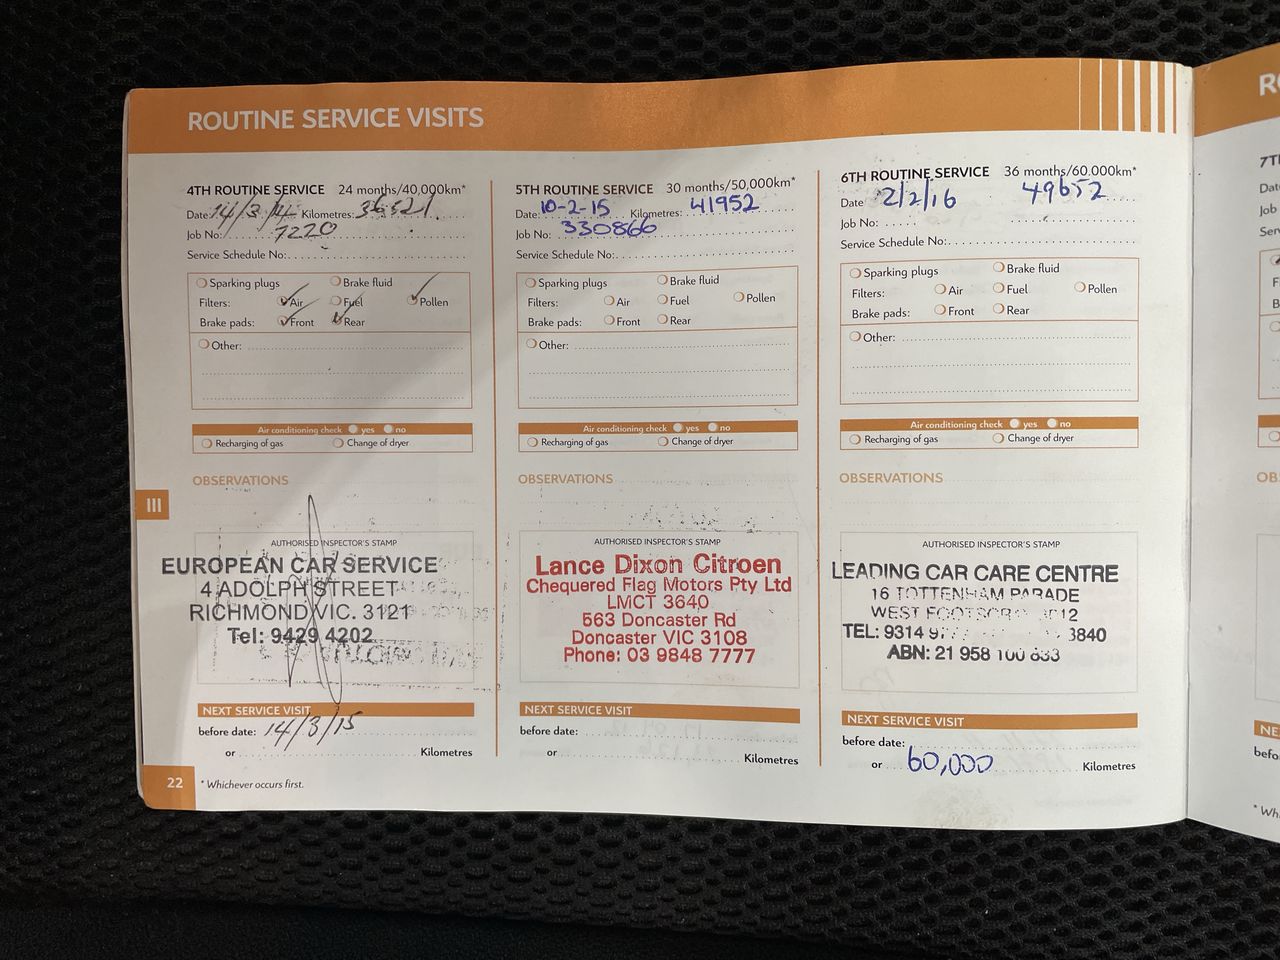 ROUTINE SERVICE VISITS
4TH ROUTINE SERVICE 24 months/40,000km*
Date: 14/3/14 Kilometres: 36521
Job No: 7220
Service Schedule No:
Sparking plugs Brake fluid
Filters: Air Fuel Pollen
Brake pads: Front Rear
Other:
Air conditioning check yes no
Recharging of gas Change of dryer
OBSERVATIONS
AUTHORISED INSPECTOR'S STAMP
EUROPEAN CAR SERVICE
4 ADOLPH STREET
RICHMOND VIC. 3121
Tel: 9429 4202
NEXT SERVICE VISIT
before date: 14/3/15
or Kilometres
22 * Whichever occurs first.
III
5TH ROUTINE SERVICE 30 months/50,000km*
Date: 10-2-15 Kilometres: 41952
Job No: 330866
Service Schedule No:
Sparking plugs Brake fluid
Filters: Air Fuel Pollen
Brake pads: Front Rear
Other:
Air conditioning check yes no
Recharging of gas Change of dryer
OBSERVATIONS
AUTHORISED INSPECTOR'S STAMP
Lance Dixon Citroen
Chequered Flag Motors Pty Ltd
LMCT 3640
563 Doncaster Rd
Doncaster VIC 3108
Phone: 03 9848 7777
NEXT SERVICE VISIT
before date:
or Kilometres
6TH ROUTINE SERVICE 36 months/60,000km*
Date 2/2/16 49652
Job No:
Service Schedule No:
Sparking plugs Brake fluid
Filters: Air Fuel Pollen
Brake pads: Front Rear
Other:
Air conditioning check yes no
Recharging of gas Change of dryer
OBSERVATIONS
AUTHORISED INSPECTOR'S STAMP
LEADING CAR CARE CENTRE
16 TOTTENHAM PARADE
WEST
TEL: 9314 3840
ABN: 21 958 100 633
NEXT SERVICE VISIT
before date:
or 60,000 Kilometres